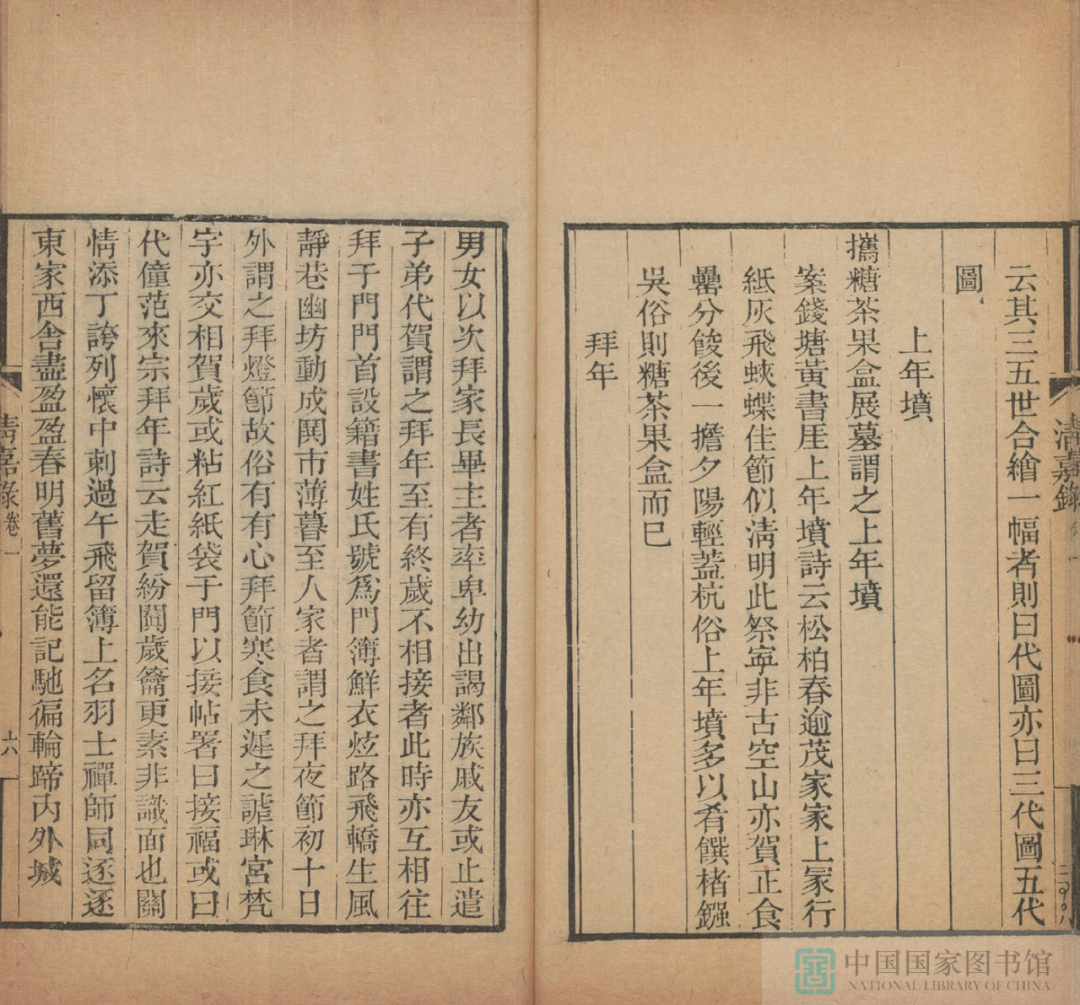 云其三五世合繪一幅者則曰代圖亦曰三代圖五代
圖
上年墳
攜糖茶果盒展墓謂之上年墳
案錢塘黃書厓上年墳詩云松柏春逾茂家家上冢行
紙灰飛蛺蝶佳節似淸明此祭寧非古空山亦賀正食
罍分餕後一擔夕陽輕蓋杭俗上年墳多以肴饌楮鏹
吳俗則糖茶果盒而已
拜年
男女以次拜家長畢主者率卑幼出謁鄰族戚友或止遣
子弟代賀謂之拜年至有終歲不相接者此時亦互相往
拜于門門首設籍書姓氏號爲門簿鮮衣炫路飛轎生風
靜巷幽坊動成鬨市薄暮至人家者謂之拜夜節初十日
外謂之拜燈節故俗有有心拜節寒食未遲之謔琳宮梵
宇亦交相賀歲或粘紅紙袋于門以接帖署曰接福或曰
代僮范來宗拜年詩云走賀紛闐歲籥更素非識面也關
情添丁誇列懷中刺過午飛留簿上名羽士禪師同逐逐
東家西舍盡盈盈春明舊夢還能記馳徧輪蹄內外城
淸嘉錄 卷一
六
中国国家图书馆
NATIONAL LIBRARY OF CHINA